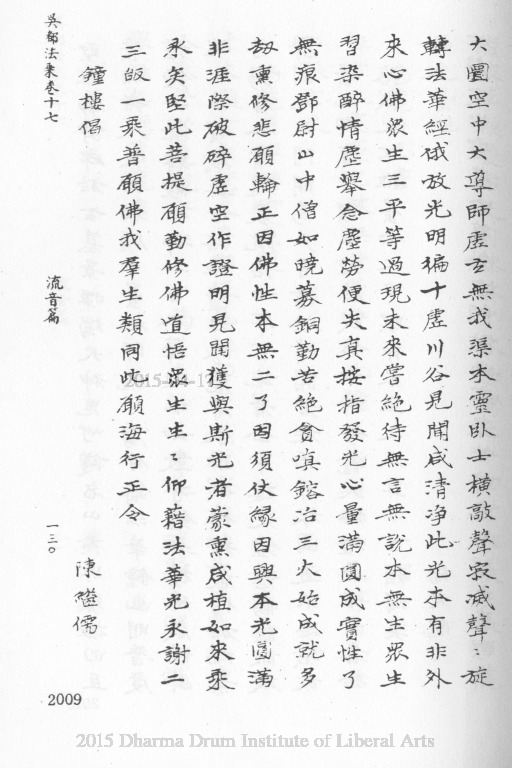 大圜空中大導師虛玄無我渠本靈臥士橫敲聲寂滅聲〻旋
轉法華經俄放光明徧十虛川谷見聞咸清淨此光本有非外
來心佛眾生三平等過現未來嘗絕待無言無說本無生眾生
習染醉情塵舉念塵勞便失真按指發光心量滿圓成實性了
無痕鄧尉山中僧如曉募銅勤苦絕貪嗔鎔冶三火始成就多
劫熏修悲願輪正因佛性本無二了因須仗緣因興本光圓滿
非涯際破碎虛空作證明見聞獲與斯光者蒙熏咸植如來乘
永矢堅此菩提願勤修佛道悟眾生生〻仰藉法華光永謝二
三皈一乘普願佛我羣生類同此願海行正令
鐘樓偈
陳繼儒
吳都法乘卷十七
流音篇
一三〇
2009
2015-04-17
2015 Dharma Drum Institute of Liberal Arts